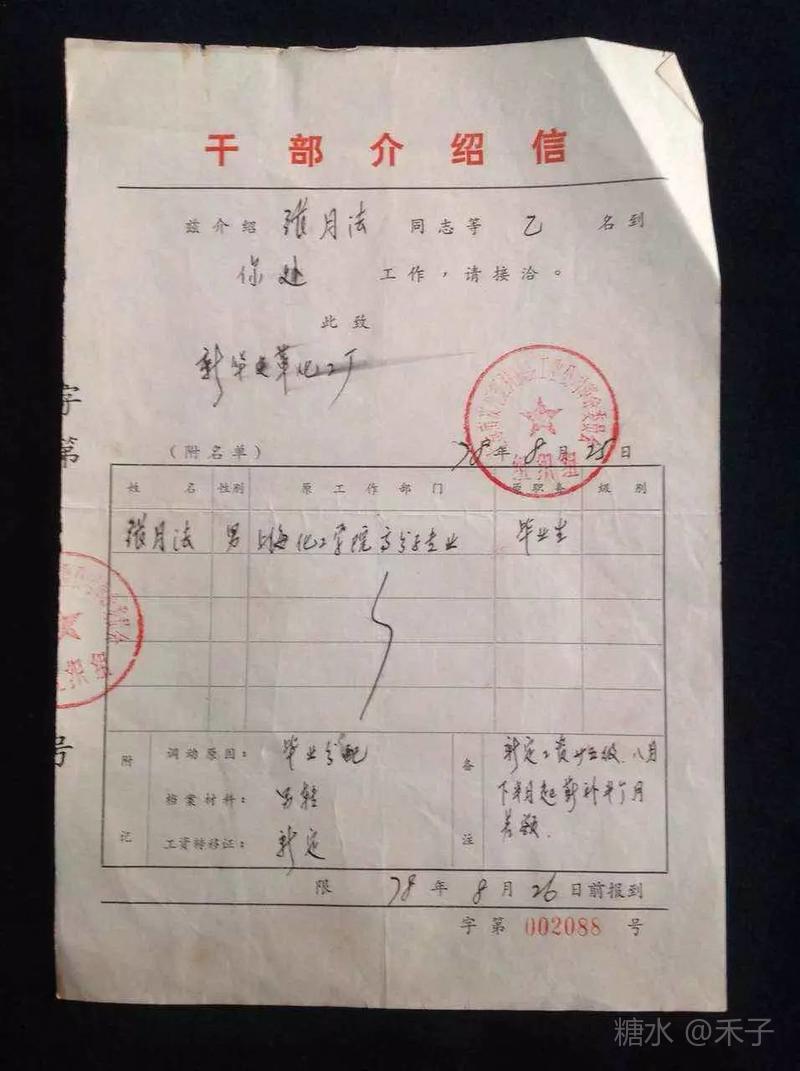 干部介绍信
兹介绍 张月法 同志等 乙 名到
你处 工作，请接洽。
此致
新华皮革化工厂
（附名单） 78年8月25日
组织组
字第
号
姓名 性别 原工作部门 原职务 级别
张月法 男 上海化工学院高分子专业 毕业生
附记
调动原因：毕业分配
档案材料：另转
工资转移证：新定
备注
新定工资廿五级.八月
下半月起薪补半个月
差额.
限 78年8月26日前报到
字第 002088 号
组织组
糖水 @禾子